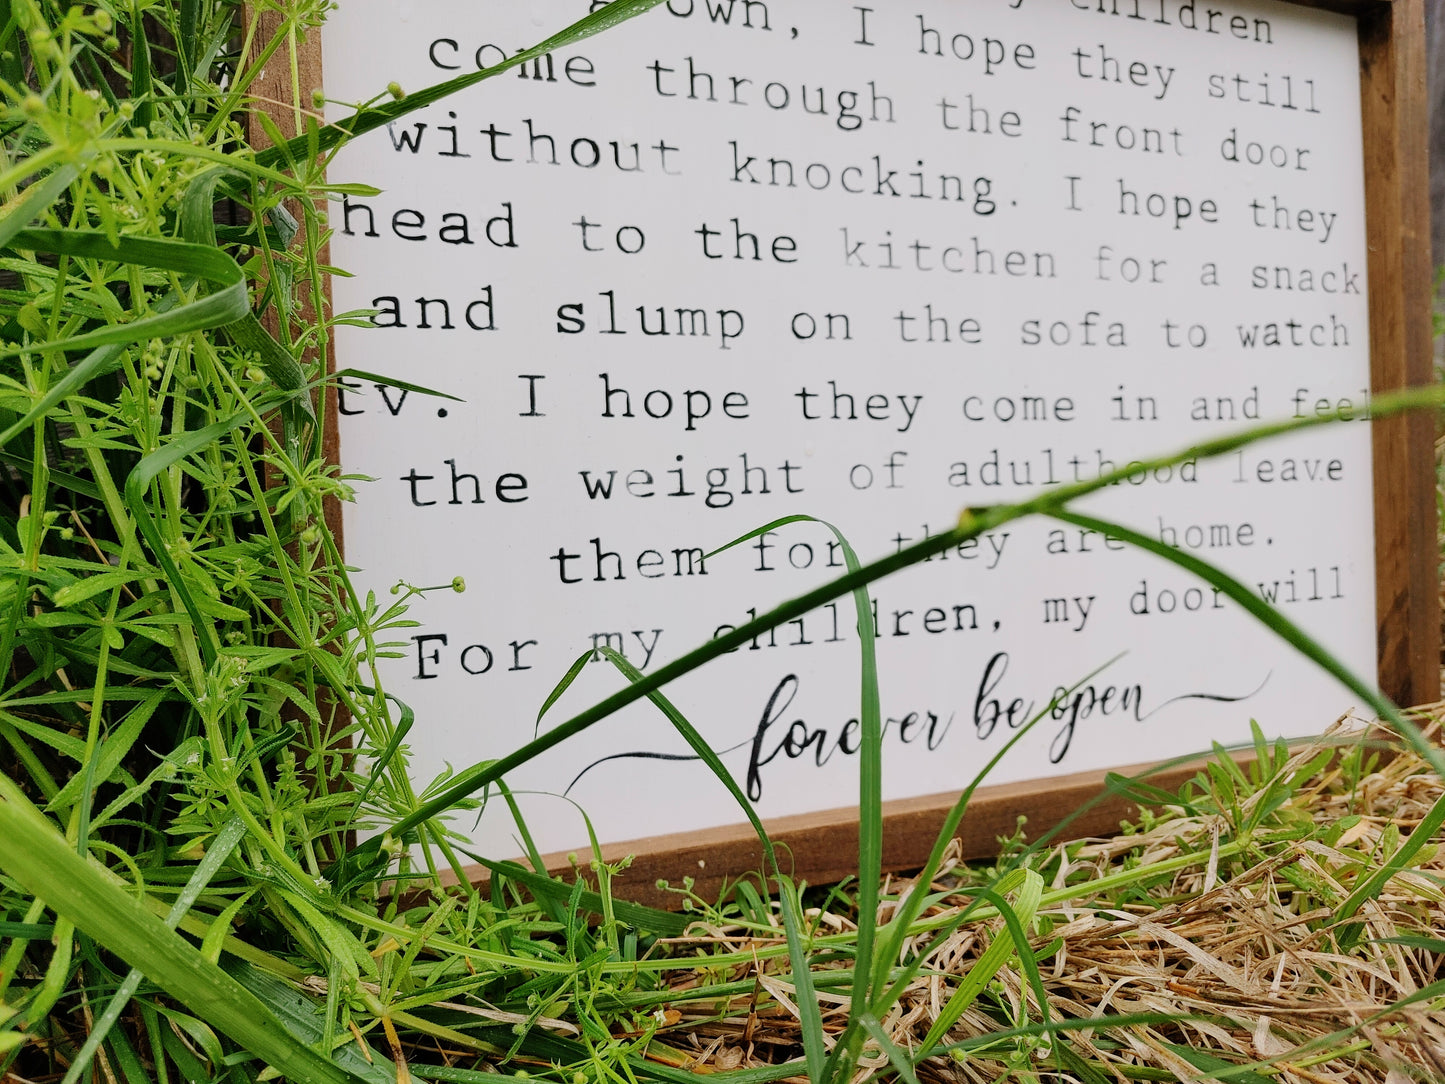 children
grown, I hope they still
come through the front door
without knocking. I hope they
head to the kitchen for a snack
and slump on the sofa to watch
tv. I hope they come in and feel
the weight of adulthood leave
them for they are home.
For my children, my door will
forever be open